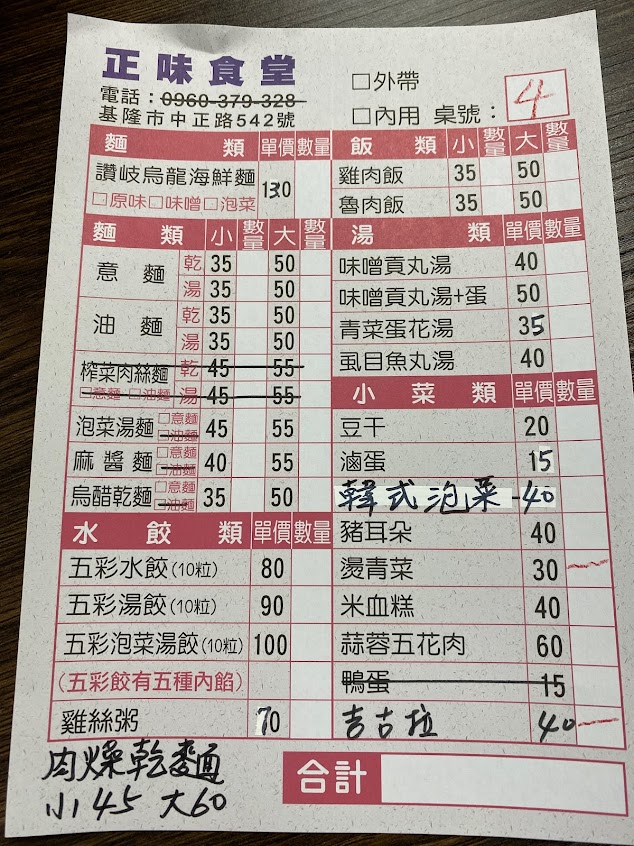 正味食堂
電話：0960-379-328
基隆市中正路542號
□外帶
□內用 桌號： 4
麵類 單價 數量
讚岐烏龍海鮮麵 130
□原味□味噌□泡菜
麵類 小 數量 大 數量
意麵 乾 35 50
湯 35 50
油麵 乾 35 50
湯 35 50
榨菜肉絲麵 乾 45 55
□意麵 □油麵 湯 45 55
泡菜湯麵 □意麵 □油麵 45 55
麻醬麵 □意麵 □油麵 40 55
烏醋乾麵 □意麵 □油麵 35 50
水餃類 單價 數量
五彩水餃(10粒) 80
五彩湯餃(10粒) 90
五彩泡菜湯餃(10粒) 100
(五彩餃有五種內餡)
雞絲粥 70
肉燥乾麵
小45 大60
飯類 小 數量 大 數量
雞肉飯 35 50
魯肉飯 35 50
湯類 單價 數量
味噌貢丸湯 40
味噌貢丸湯+蛋 50
青菜蛋花湯 35
虱目魚丸湯 40
小菜類 單價 數量
豆干 20
滷蛋 15
韓式泡菜-40
豬耳朵 40
燙青菜 30
米血糕 40
蒜蓉五花肉 60
鴨蛋 15
吉古拉 40
合計